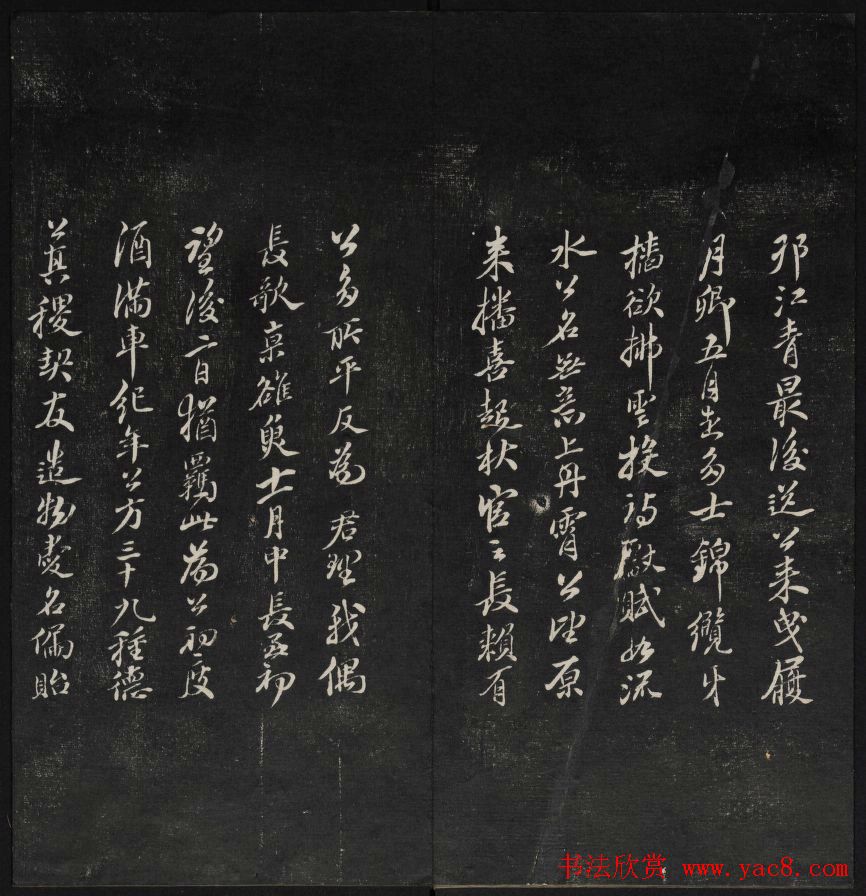 邗江青最後送公來曳履
月卿五月去多士錦纜牙
檣欲拂雲投詩獻賦如流
水公名無意上丹霄公田原
來播喜起秋官之長賴有
公多所平反為君理我偶
長歌
士月中長至初
望後二日猶羈此為公初度
酒滿車紀年公方三十九種德
真稷契友造物愛名偏貽
书法欣赏 www.yac8.com